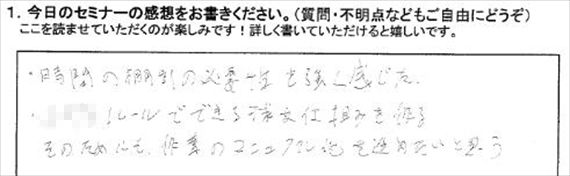 1. 今日のセミナーの感想をお書きください。(質問・不明点などもご自由にどうぞ)
ここを読ませていただくのが楽しみです！詳しく書いていただけると嬉しいです。
・時間の棚割の必要性を強く感じた
・ルールでできる 仕組みを作る
そのためにも、作業のマニュアル化を進めたいと思う